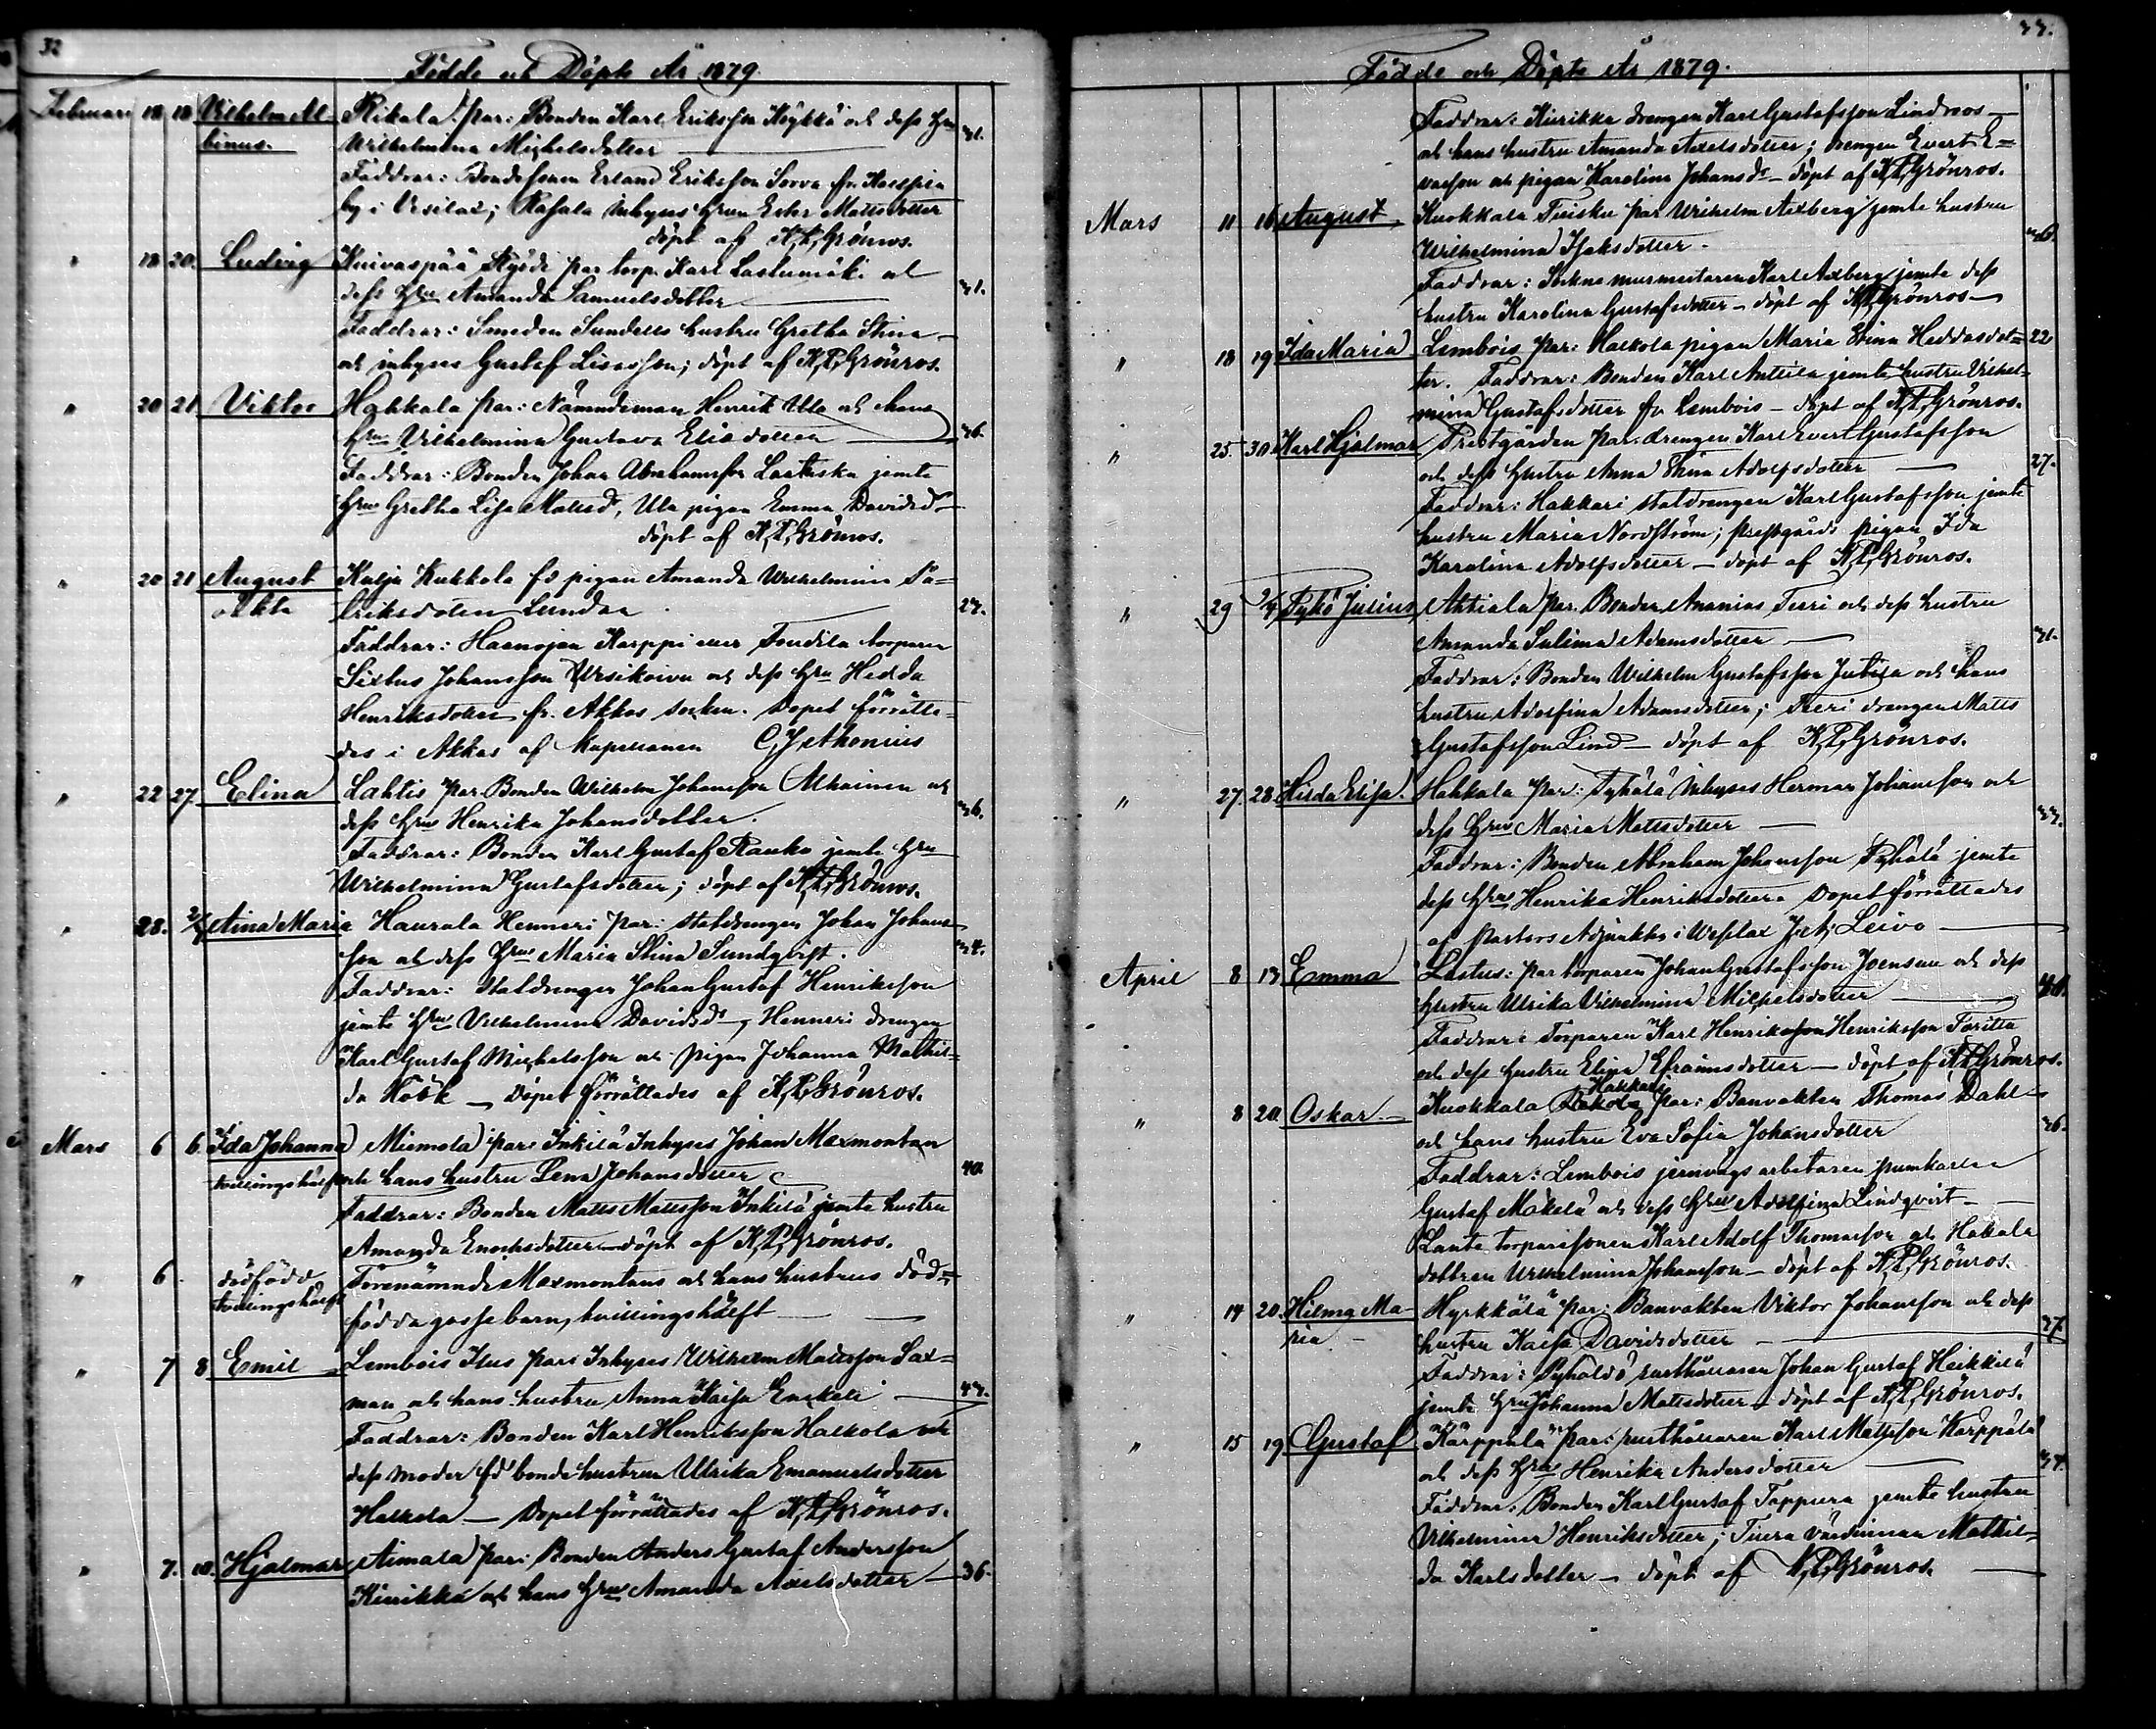 32
Födde och Döpte År 1879.
Februari 18 18 Vilhelm Al- Rikala par: Bonden Karl ErikssonKöykkä och dess hru 31.
binus. Wilhelmina Michelsdotter
Faddrar: Bondesonen Erland Eriksson Sorva fr.
by i Vesilax; Rasala inhyses hrun Ester Mattsdotter
döpt af K,P,Grönros.
" 18 20. Ludvig Kuivaspää par torp. Karl Lastumäki och
dess hru Amanda Samuelsdotter 31.
Faddrar: Smeden Sundells hustru Gretha Stina
och inhyses Gustaf Lisasson; döpt af K,P,Grönros.
" 20 21 Viktor Hakkala par: Nämndeman Henrik Ula och hans
hru Vilhelmina Gustava Eliedotter 36.
Faddrar: Bonden Johan Abrahamsson jemte
hru Gretha Lisa Mattsd, Ula pigan Emma Davidsd
döpt af K,P,Grönros.
" 20 21 August Kulju Kukkola fs pigan Amanda Wilhelmina
Akta Eriksdotter Lundan 27.
Faddrar: Haenojan Karppi eller torparen
Sixtus Johansson och dess hru Hedda
Henriksdotter fr. Akkas socken. Dopet förrätta-
des i Akkas af kapellanen C,J,Athonius
" 22 27 Elina Lahtis par Bonden Wilhelm Johansson Alhainen och
dess hru Henrika Johansdotter. 36.
Faddrar: Bonden Karl Gustaf Rauko jemte hru
Wilhelmina Gustafsdotter; döpt af K,P,Grönros.
" 28. Aina Maria Haurala Henneri par: statdrengen Johan Johans-
son och dess hru Maria Stina Sundqvist. 34.
Faddrar: Statdrengen Johan Gustaf Henriksson
jemte hru Vilhelmina Davidsd, Henneri drengen
Karl Gustaf Michelsson och pigan Johanna Mathil-
da Köök — Dopet förrättades af K,P,Grönros.
Mars 6 6. Ida Johanna Miemola par: Inkilä Inhyses Johan Maxmontan
tvillingshälft och hans hustru Lena Johansdotter 40.
Faddrar: Bonden Matts Mattsson Inkilä jemte hustru
Amanda Enochsdotter — döpt af K,P,Grönros.
" 6. dödfödde Förenämnde Maxmontans och hans hustrus död-
tvillingshälft födda gosse barn, tvillingshälft
" 7 8 Emil Lembois Ilus par: Inhyses Wilhelm Mattsson Sax-
man och hans hustru Anna Kaisa Enckell 43.
Faddrar: Bonden Karl Henriksson Halkola och
dess moder fd bondehustrun Ulrika Emanuelsdotter
Halkola — Dopet förrättades af K,P,Grönros.
" 7. 10. Hjalmar Aimala par: Bonden Anders Gustaf Andersson
Kiurikka och hans hru Amanda Axelsdotter 36.
33.
Födde och Döpte År 1879.
Faddrar: Kiurikka drengen Karl Gustafsson Lindroos
och hans hustru Amanda Axelsdotter; drengen Evert E=
varson och pigan Karolina Johansdr — döpt af K,P,Grönros.
Mars 11 16 August Kuokkala Tuisku par Wilhelm Axberg jemte hustru
Wilhelmina Isaksdotter.
Faddrar: Socknemurmestaren Karl Axberg jemte dess
hustru Karolina Gustafsdotter — döpt af K,P,Grönros
" 18 19 Ida Maria Lembois par: Halkola pigan Maria Stina Heddasdot= 22
ter. Faddrar: Bonden Karl Anttila jemte hustru Vilhel-
mina Gustafsdotter fr Lembois — döpt af K,P,Grönros.
" 25. 30 Karl Hjalmar Prestgården par. drengen Karl Evert Gustafsson
och dess hustru Anna Stina Adolfsdotter 27.
Faddrar: Hakkari statdrengen Karl Gustafsson jemte
hustru Maria Nordström; prestgårds pigan Ida
Karolina Adolfsdotter — döpt af K,P,Grönros.
" 29 Tykö Julius Ahtiala par. Bonden Ananias Tieri och dess hustru
Amanda Sulima Adamsdotter 31.
Faddrar: Bonden Wilhelm Gustafsson Jutila och hans
hustru Adolfina Adamsdotter; Tieri drengen Matts
Gustafsson Lind — döpt af K,P,Grönros.
" 27. 28. Hilda Elisa. Hakkala par: Pyhälä inhyses Herman Johansson och
dess hru Maria Mattsdotter 33.
Faddrar: Bonden Abraham Johansson Pyhälä jemte
dess hru Henrika Henriksdotter. Dopet förrättades
af Pastors Adjunkten i Vesilax J,A, Leivo
April 8 13 Emma Lastus: par torparen Johan Gustafsson Joensuu och dess
hustru Ulrika Vilhelmina Michelsdotter
Faddrar: Torparen Karl Henriksson Henriksson
och dess hustru Elina Efraimsdotter — döpt af K,P,Grönros.
Hakkari
" 8 20. Oskar Kuokkala par: Banvakten Thomas Dahl
och hans hustru Eva Sofia Johansdotter 36.
Faddrar: Lembois jernvägs arbetaren
Gustaf Mäkelä och dess hru Adolfina Lindqvist
torparesonen Karl Adolf Thomasson och Hakala
dottren Wilhelmina Johansson — döpt af K,P,Grönros.
" 14 20. Hilma Ma- Hyrkkälä par: Banvakten Viktor Johansson och dess
ria hustru Kaisa Davidsdotter 37.
Faddrar: Pyhältö rusthållaren Johan Gustaf Heikkilä
jemte hru Johanna Mattsdotter — döpt af K,P,Grönros.
" 15 19. Gustaf Kärppälä par: rusthållaren Karl Mattsson Kärppälä
och dess hru Henrika Andersdotter 34.
Faddrar: Bonden Karl Gustaf Tappura jemte hustru
Vilhelmina Henriksdotter; värdinnan Mathil=
da Karlsdotter — döpt af K,P,Grönros.